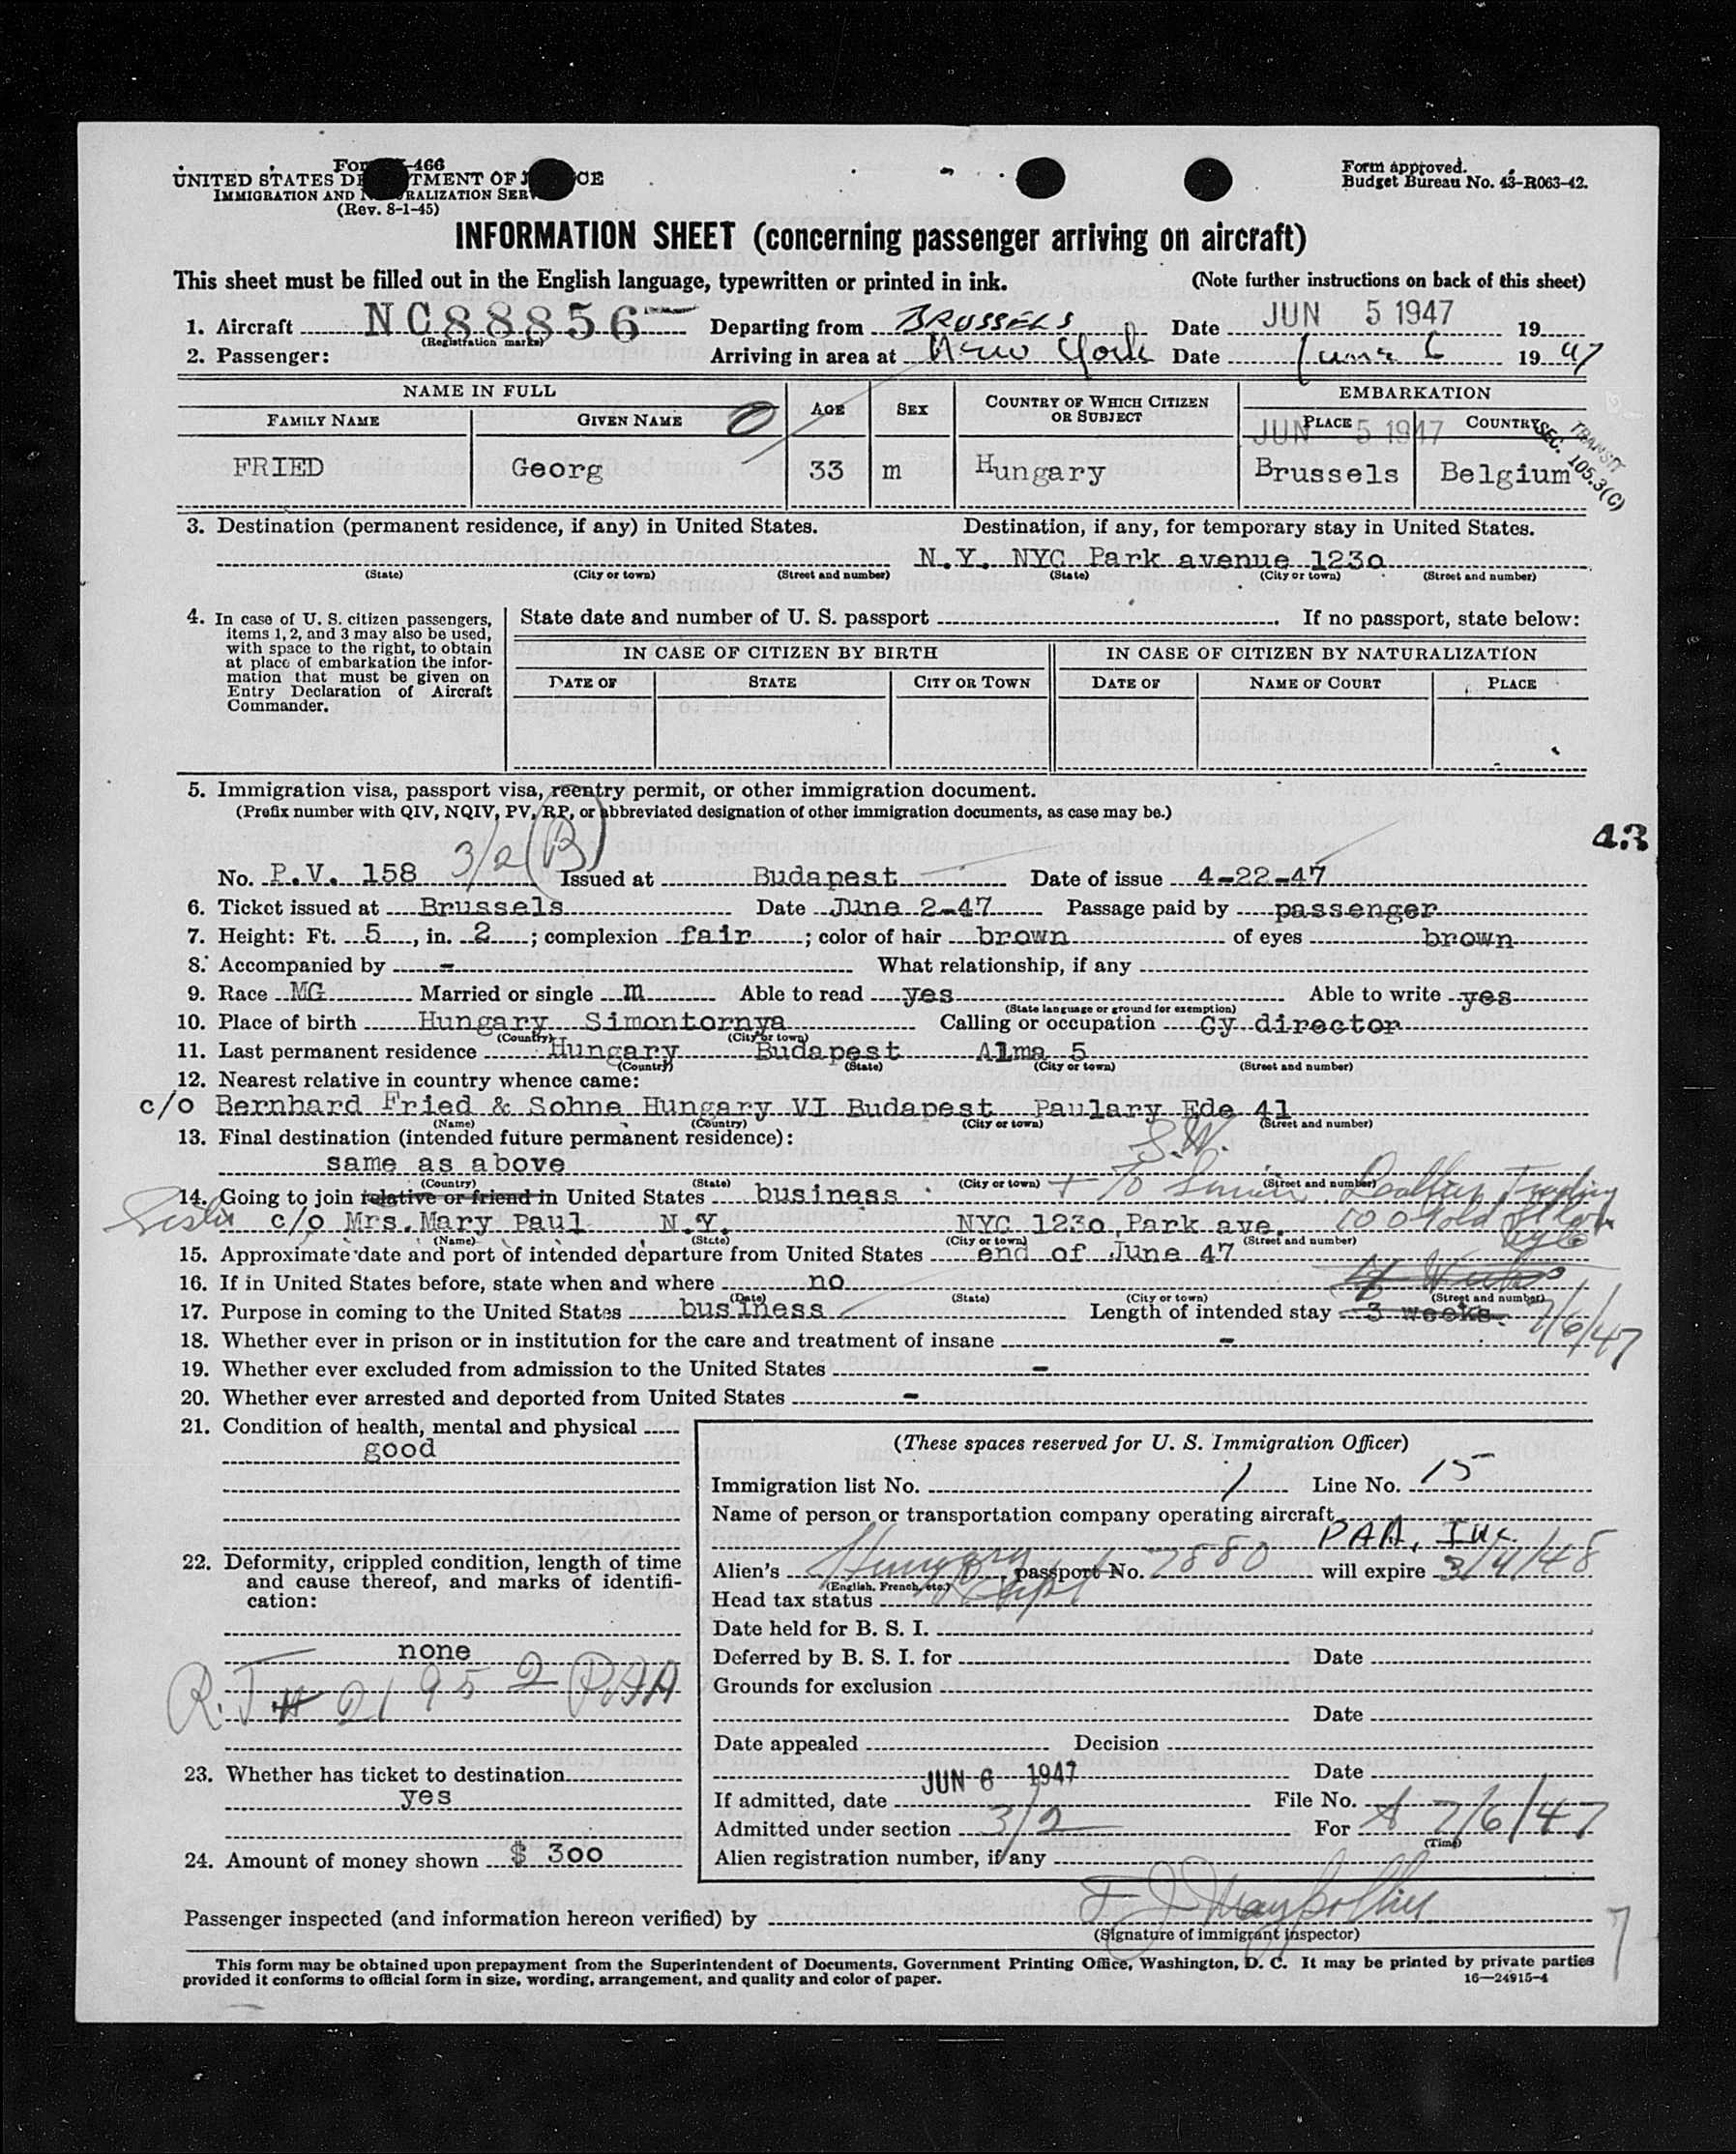 Form -466
UNITED STATES DE TMENT OF J CE
IMMIGRATION AND N RALIZATION SER
(Rev. 8-1-45)
Form approved.
Budget Bureau No. 43-R063-42.
INFORMATION SHEET (concerning passenger arriving on aircraft)
This sheet must be filled out in the English language, typewritten or printed in ink. (Note further instructions on back of this sheet)
1. Aircraft NC88856 Departing from BRUSSELS Date JUN 5 1947 19
(Registration marks)
2. Passenger: Arriving in area at New York Date June 6 1947
NAME IN FULL AGE SEX COUNTRY OF WHICH CITIZEN OR SUBJECT EMBARKATION
FAMILY NAME GIVEN NAME PLACE COUNTRY
JUN 5 1947
TRANSIT
SEC. 105.3(C)
FRIED Georg 33 m Hungary Brussels Belgium
3. Destination (permanent residence, if any) in United States. Destination, if any, for temporary stay in United States.
N.Y. NYC Park avenue 123o
(State) (City or town) (Street and number) (State) (City or town) (Street and number)
4. In case of U. S. citizen passengers, items 1, 2, and 3 may also be used, with space to the right, to obtain at place of embarkation the information that must be given on Entry Declaration of Aircraft Commander.
State date and number of U. S. passport . If no passport, state below:
IN CASE OF CITIZEN BY BIRTH IN CASE OF CITIZEN BY NATURALIZATION
DATE OF STATE CITY OR TOWN DATE OF NAME OF COURT PLACE
5. Immigration visa, passport visa, reentry permit, or other immigration document.
(Prefix number with QIV, NQIV, PV, RP, or abbreviated designation of other immigration documents, as case may be.)
43
3/2 (B)
No. P.V. 158 Issued at Budapest Date of issue 4-22-47
6. Ticket issued at Brussels Date June 2-47 Passage paid by passenger
7. Height: Ft. 5, in. 2; complexion fair; color of hair brown of eyes brown
8. Accompanied by - What relationship, if any
9. Race MG Married or single m Able to read yes Able to write yes
(State language or ground for exemption)
10. Place of birth Hungary Simontornya Calling or occupation Cy director
(Country) (City or town)
11. Last permanent residence Hungary Budapest Alma 5
(Country) (State) (City or town) (Street and number)
12. Nearest relative in country whence came:
c/o Bernhard Fried & Sohne Hungary VI Budapest Paulary Ede 41
(Name) (Country) (City or town) (Street and number)
13. Final destination (intended future permanent residence):
S.W.
same as above
(Country) (State) (City or town) (Street and number)
14. Going to join relative or friend in United States business
Sister c/o Mrs. Mary Paul N.Y. NYC 123o Park ave.
(Name) (State) (City or town) (Street and number)
15. Approximate date and port of intended departure from United States end of June 47
16. If in United States before, state when and where no
(Date) (State) (City or town) (Street and number)
17. Purpose in coming to the United States business Length of intended stay 3 weeks. 7/6/47
18. Whether ever in prison or in institution for the care and treatment of insane -
19. Whether ever excluded from admission to the United States -
20. Whether ever arrested and deported from United States -
21. Condition of health, mental and physical
good
22. Deformity, crippled condition, length of time and cause thereof, and marks of identification:
none
R.T # 21952 PAA
23. Whether has ticket to destination
yes
24. Amount of money shown $ 3oo
(These spaces reserved for U. S. Immigration Officer)
Immigration list No. 1 Line No. 15
Name of person or transportation company operating aircraft
PAA, Inc.
Alien's Hungary passport No. 7880 will expire 3/4/48
(English, French, etc.)
Head tax status
Date held for B. S. I.
Deferred by B. S. I. for Date
Grounds for exclusion
Date
Date appealed Decision
Date
If admitted, date JUN 6 1947 File No.
Admitted under section 3/2 For 7/6/47
(Time)
Alien registration number, if any
Passenger inspected (and information hereon verified) by
(Signature of immigrant inspector)
This form may be obtained upon prepayment from the Superintendent of Documents, Government Printing Office, Washington, D. C. It may be printed by private parties
provided it conforms to official form in size, wording, arrangement, and quality and color of paper. 16—24915-4